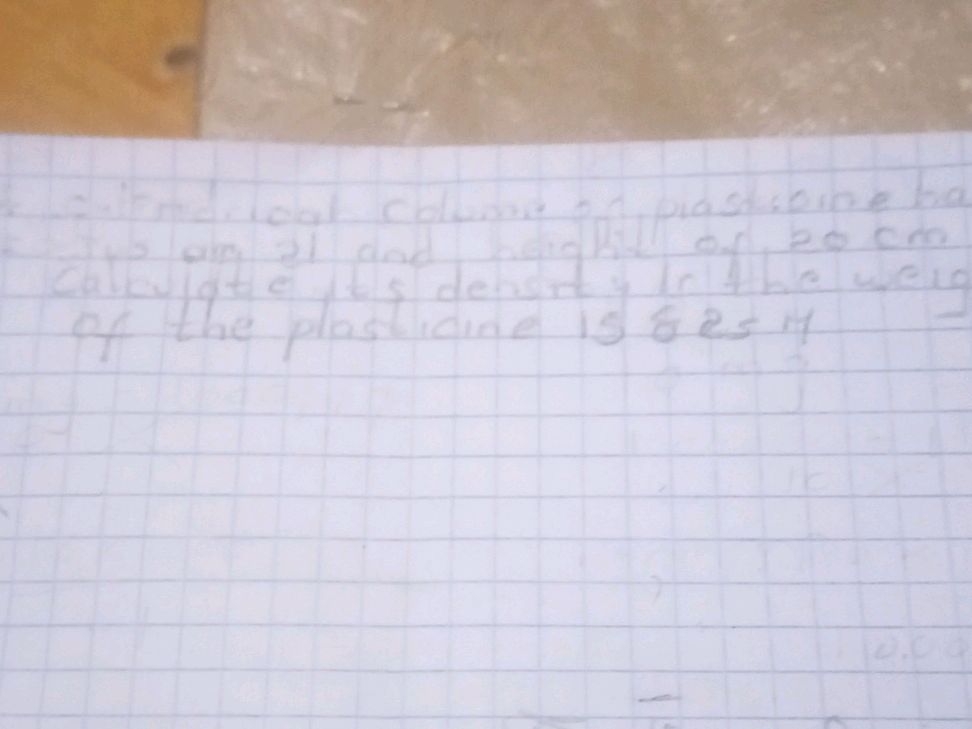 column of plasticine ha
21 and height of 20 cm
Calculate its density if the weig
of the plasticine is 825 N